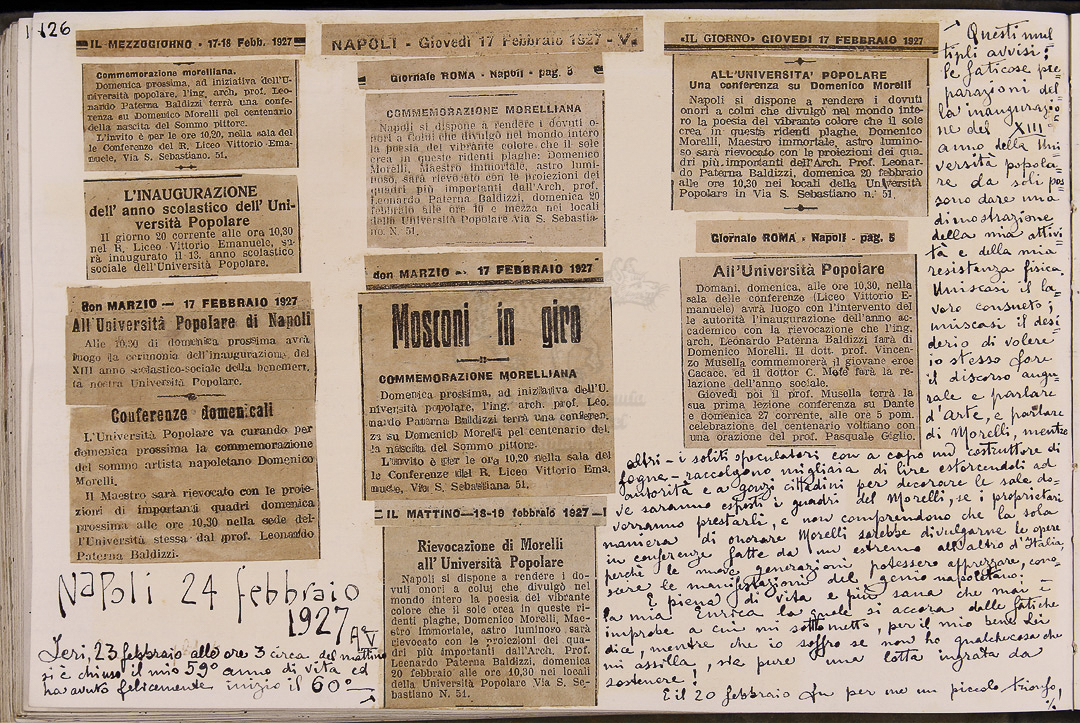 126
IL MEZZOGIORNO - 17-18 Febb. 1927
Commemorazione morelliana.
Domenica prossima, ad iniziativa dell'U-
niversità popolare, l'ing. arch. prof. Leo-
nardo Paterna Baldizzi terrà una confe-
renza su Domenico Morelli pel centenario
della nascita del Sommo pittore.
L'invito è per le ore 10,20, nella sala del
le Conferenze del R. Liceo Vittorio Ema-
nuele, Via S. Sebastiano. 51.
L'INAUGURAZIONE
dell' anno scolastico dell' Uni-
versità Popolare
Il giorno 20 corrente alle ore 10,30
nel R. Liceo Vittorio Emanuele, sa-
rà inaugurato il 13. anno scolastico
sociale dell'Università Popolare.
Don MARZIO — 17 FEBBRAIO 1927
All'Università Popolare di Napoli
Alle 10,30 di domenica prossima avrà
luogo la cerimonia dell'inaugurazione, del
XIII anno scolastico-sociale della benemeri,
ta nostra Università Popolare.
Conferenze domenicali
L'Università Popolare va curando per
domenica prossima la commemorazione
del sommo artista napoletano Domenico
Morelli.
Il Maestro sarà rievocato con le proie-
zioni di importanti quadri domenica
prossima alle ore 10,30 nella sede del-
l'Università stessa dal prof. Leonardo
Paterna Baldizzi.
Napoli 24 febbraio
1927 A V
Ieri, 23 febbraio alle ore 3 circa del mattino
si è chiuso il mio 59º anno di vita ed
ha avuto felicemente inizio il 60º —
NAPOLI - Giovedì 17 Febbraio 1927 - V.
Giornale ROMA - Napoli - pag. 5
COMMEMORAZIONE MORELLIANA
Napoli si dispone a rendere i dovuti o-
nori a Colui che divulgò nel mondo intero
la poesia del vibrante colore che il sole
crea in queste ridenti plaghe: Domenico
Morelli, Maestro immortale, astro lumi-
noso, sarà rievocato con le proiezioni dei
quadri più importanti dall'Arch. prof.
Leonardo Paterna Baldizzi, domenica 20
febbraio alle ore 10 e mezza nei locali
della Università Popolare via S. Sebastia-
no. N. 51.
don MARZIO — 17 FEBBRAIO 1927
Mosconi in giro
COMMEMORAZIONE MORELLIANA
Domenica prossima, ad iniziativa dell'U.
niversità popolare, l'ing. arch. prof. Leo-
nardo Paterna Baldizzi terrà una conferen.
za su Domenico Morelli pel centenario del.
la nascita del Sommo pittore.
L'invito è per le ore 10,20 nella sala del
le Conferenze del R. Liceo Vittorio Ema.
nuele, Via S. Sebastiana 51.
IL MATTINO—18-19 febbraio 1927—
Rievocazione di Morelli
all'Università Popolare
Napoli si dispone a rendere i do-
vuti onori a colui che divulgò nel
mondo intero la poesia del vibrante
colore che il sole crea in queste ri-
denti plaghe, Domenico Morelli, Mae-
stro immortale, astro luminoro sarà
rievocato con le proiezioni dei qua-
dri più importanti dall'Arch. Prof.
Leonardo Paterna Baldizzi, domenica
20 febbraio alle ore 10,30 nei locali
dell'Università Popolare Via S. Se-
bastiano N. 51.
«IL GIORNO» GIOVEDÌ 17 FEBBRAIO 1927
ALL'UNIVERSITÀ POPOLARE
Una conferenza su Domenico Morelli
Napoli si dispone a rendere i dovuti
onori a colui che divulgò nel mondo inte-
ro la poesia del vibrante colore che il sole
crea in queste ridenti plaghe, Domenico
Morelli, Maestro immortale, astro lumino-
so sarà rievocato con le proiezioni dei qua-
dri più importanti dall'Arch. Prof. Leonar-
do Paterna Baldizzi, domenica 20 febbraio
alle ore 10,30 nei locali della Università
Popolare in Via S. Sebastiano n. 51,
Giornale ROMA - Napoli - pag. 5
All'Università Popolare
Domani, domenica, alle ore 10,30, nella
sala delle conferenze (Liceo Vittorio E-
manuele) avrà luogo con l'intervento del
le autorità l'inaugurazione dell'anno ac-
cademico con la rievocazione che l'ing.
arch. Leonardo Paterna Baldizzi farà di
Domenico Morelli. Il dott. prof. Vincen-
zo Musella commemorerà il giovane eroe
Cacace, ed il dottor C. Mele farà la re-
lazione dell'anno sociale.
Giovedì noi il prof. Musella terrà la
sua prima lezione conferenza su Dante
e domenica 27 corrente, alle ore 5 pom.
celebrazione del centenario voltiano con
una orazione del prof. Pasquale Giglio.
Questi mul
tipli avvisi;
le faticose pre-
parazioni del
la inaugurazio
ne del XIII
anno della Uni
versità popola-
re da soli pos
sono dare una
dimostrazione
della mia attivi
tà e della mia
resistenza fisica.
Uniscasi il la-
voro consueto;
uniscasi il desi
derio di volere
io stesso fare
il discorso augu
rale e parlare
d'Arte, e parlare
di Morelli, mentre
altri — i soliti speculatori con a capo un costruttore di
fogne — raccolgono migliaia di lire estorcendoli ad
autorità e a gonzi cittadini per decorare le sale do-
ve saranno esposti i quadri del Morelli, se i proprietari
vorranno prestarli, e non comprendono che la sola
maniera di onorare Morelli sarebbe divulgarne le opere
in conferenze fatte da un estremo all'altro d'Italia,
perchè le nuove generazioni potessero apprezzare, cono-
scere le manifestazioni del genio napoletano.
È piena di vita e più sana che mai è
la mia Enrica la quale si accora delle fatiche
improbe a cui mi sottometto, per il mio bene Lei
dice, mentre che io soffro se non ho qualchecosa che
mi assilla, sia pure una lotta ingrata da
sostenere!
E il 20 febbraio fu per me un piccolo trionfo,
%